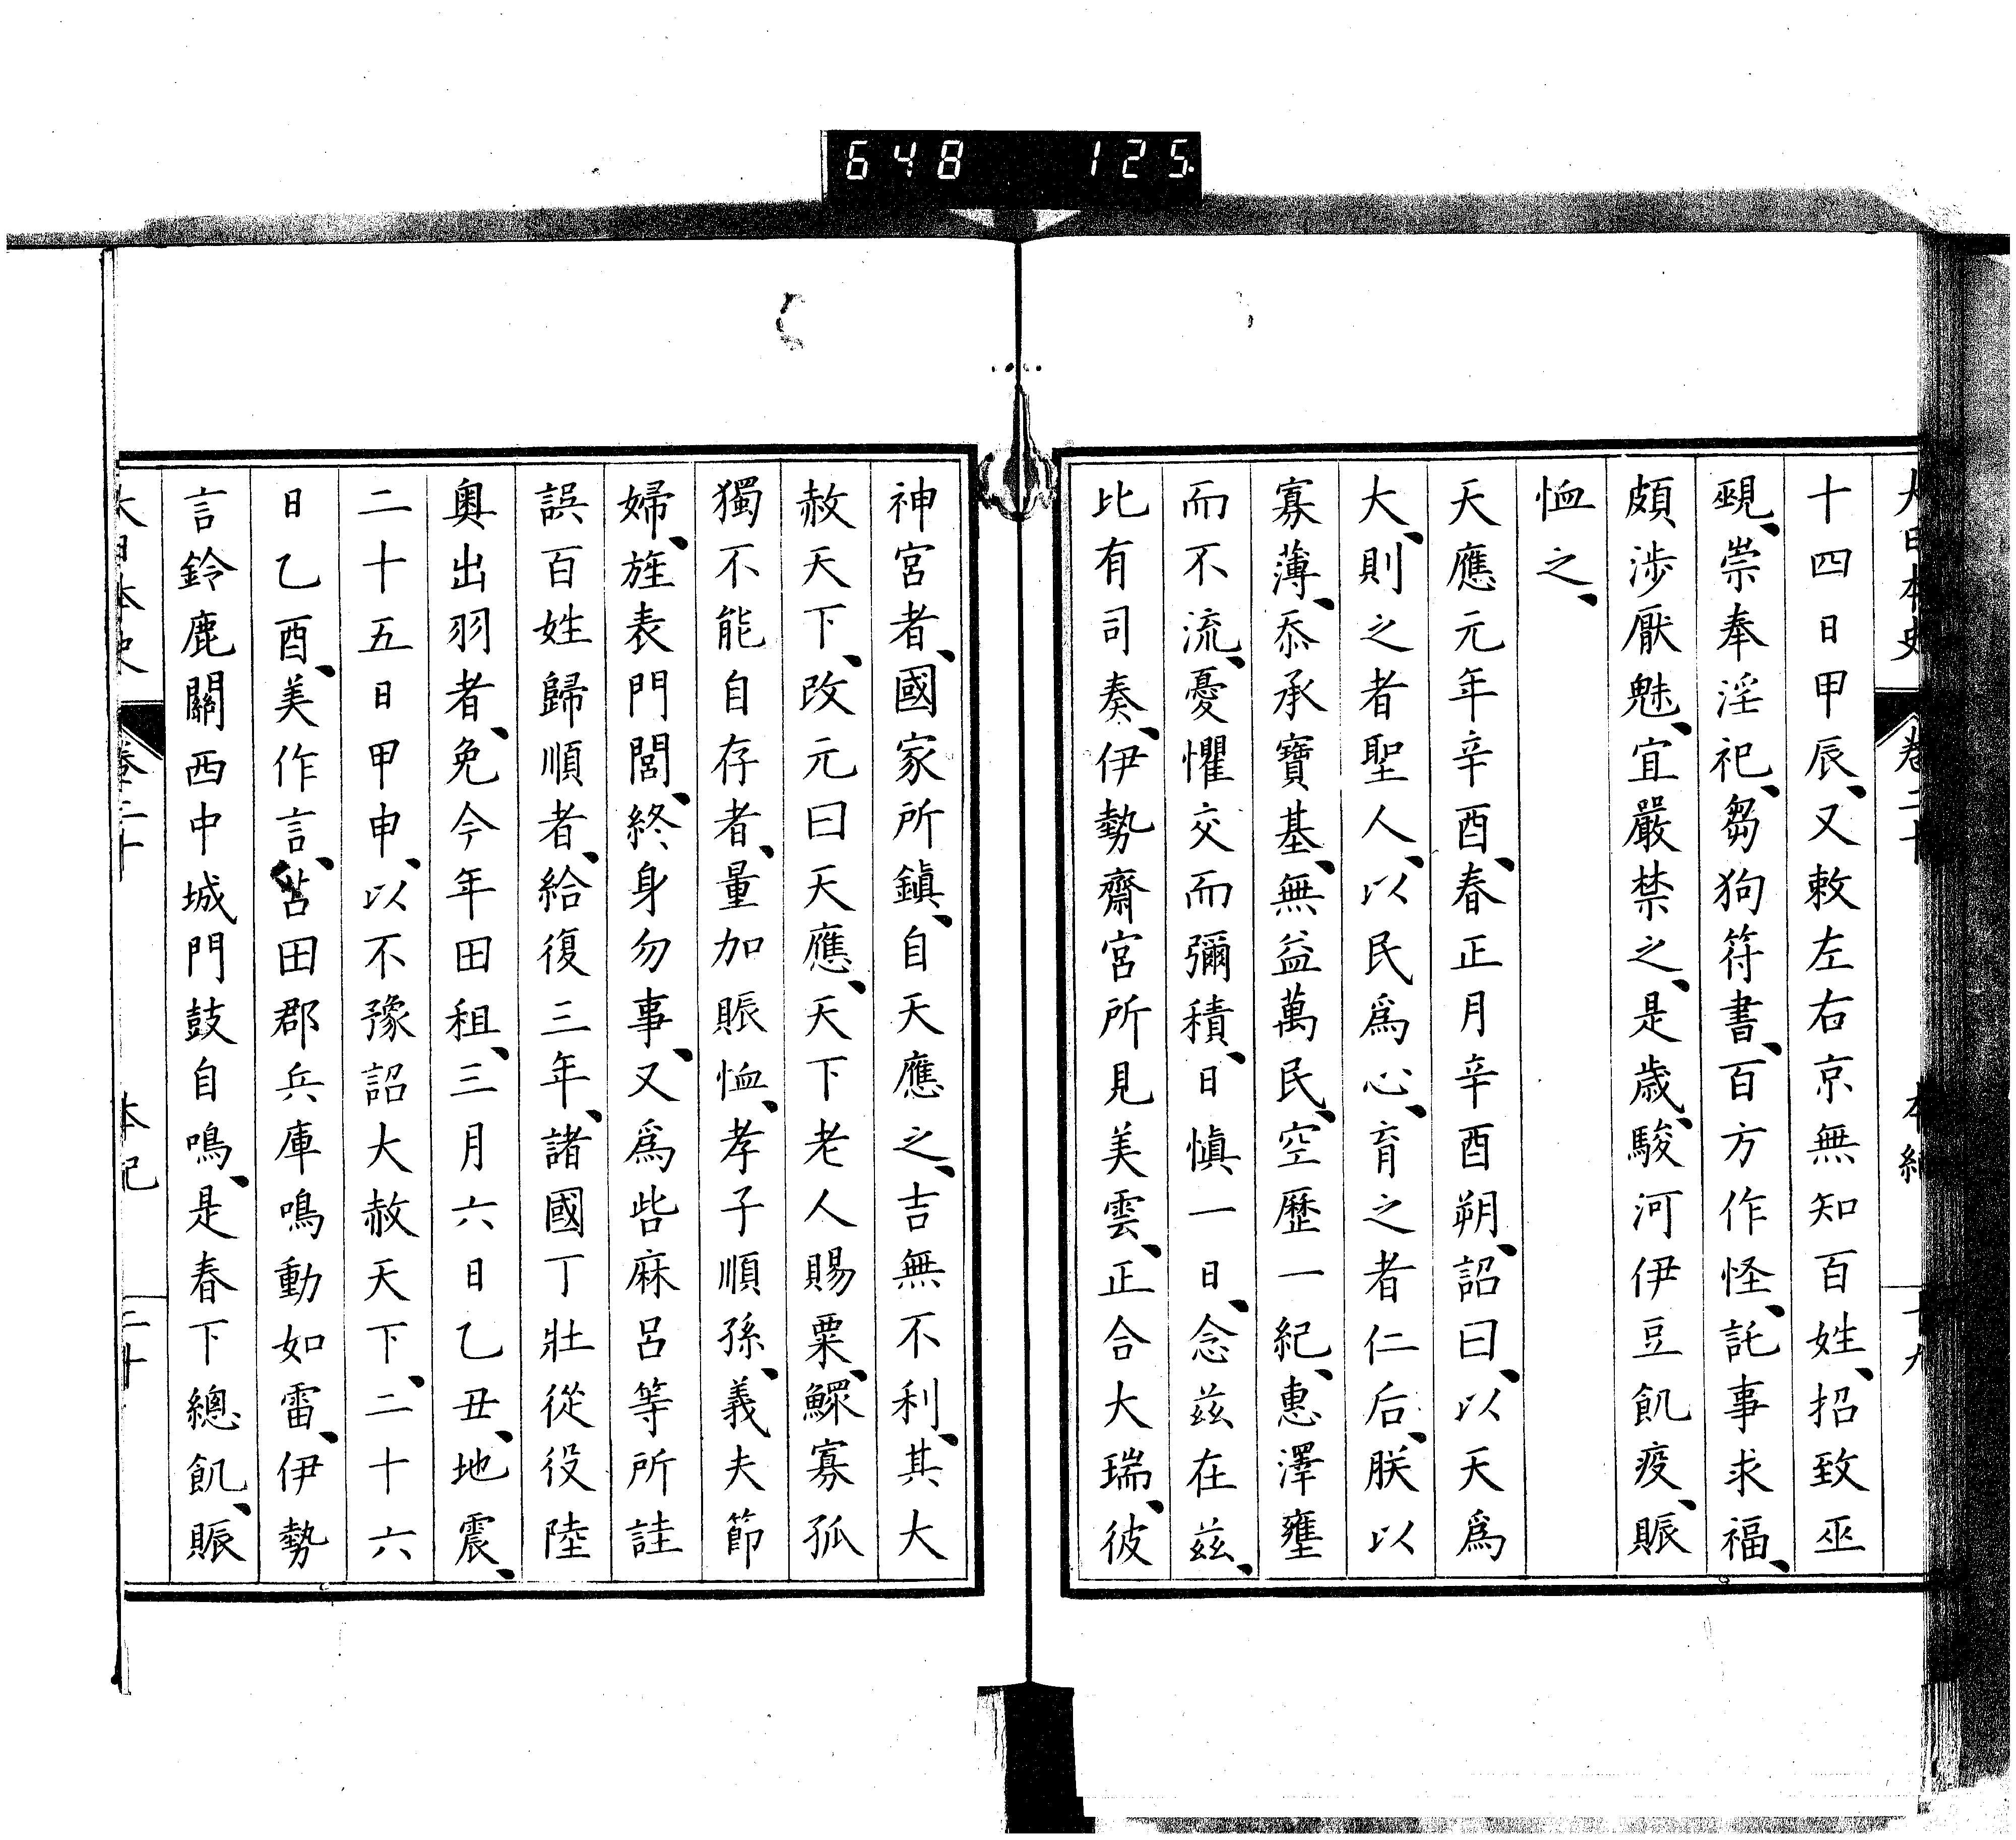 648 125
大日本史 卷二十 本紀 十九
十四日甲辰、又敕左右京無知百姓、招致巫
覡、崇奉淫祀、芻狗符書、百方作怪、託事求福、
頗涉厭魅、宜嚴禁之、是歳、駿河伊豆飢疫、賑
恤之、
天應元年辛酉、春正月辛酉朔、詔曰、以天爲
大、則之者聖人、以民爲心、育之者仁后、朕以
寡薄、忝承寶基、無益萬民、空歷一紀、惠澤壅
而不流、憂懼交而彌積、日愼一日、念茲在茲、
比有司奏、伊勢齋宮所見美雲、正合大瑞、彼
神宮者、國家所鎭、自天應之、吉無不利、其大
赦天下、改元曰天應、天下老人賜粟、鰥寡孤
獨不能自存者、量加賑恤、孝子順孫、義夫節
婦、旌表門閭、終身勿事、又爲呰麻呂等所詿
誤百姓歸順者、給復三年、諸國丁壯從役陸
奧出羽者、免今年田租、三月六日乙丑、地震、
二十五日甲申、以不豫詔大赦天下、二十六
日乙酉、美作言、苫田郡兵庫鳴動如雷、伊勢
言鈴鹿關西中城門鼓自鳴、是春下總飢、賑
大日本史 卷二十 本紀 二十